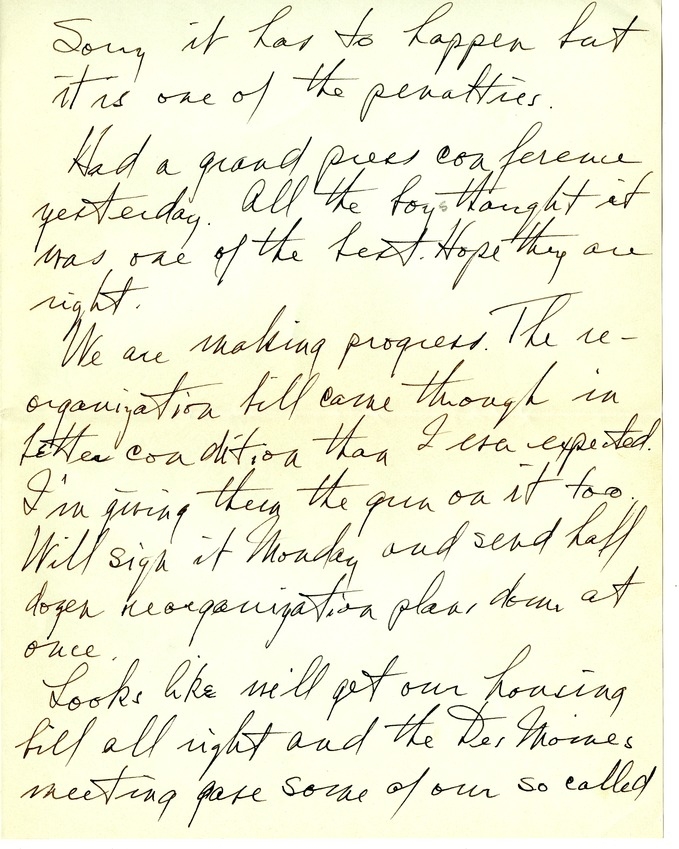 Sorry it has to happen but
it is one of the penalties.
Had a grand press conference
yesterday. All the boys thought it
was one of the best. Hope they are
right.
We are making progress. The re-
organization bill came through in
better condition than I ever expected.
I'm giving them the gun on it too.
Will sign it Monday and send half
dozen reorganization plans down at
once.
Looks like we'll get our housing
bill all right and the Des Moines
meeting gave some of our so called